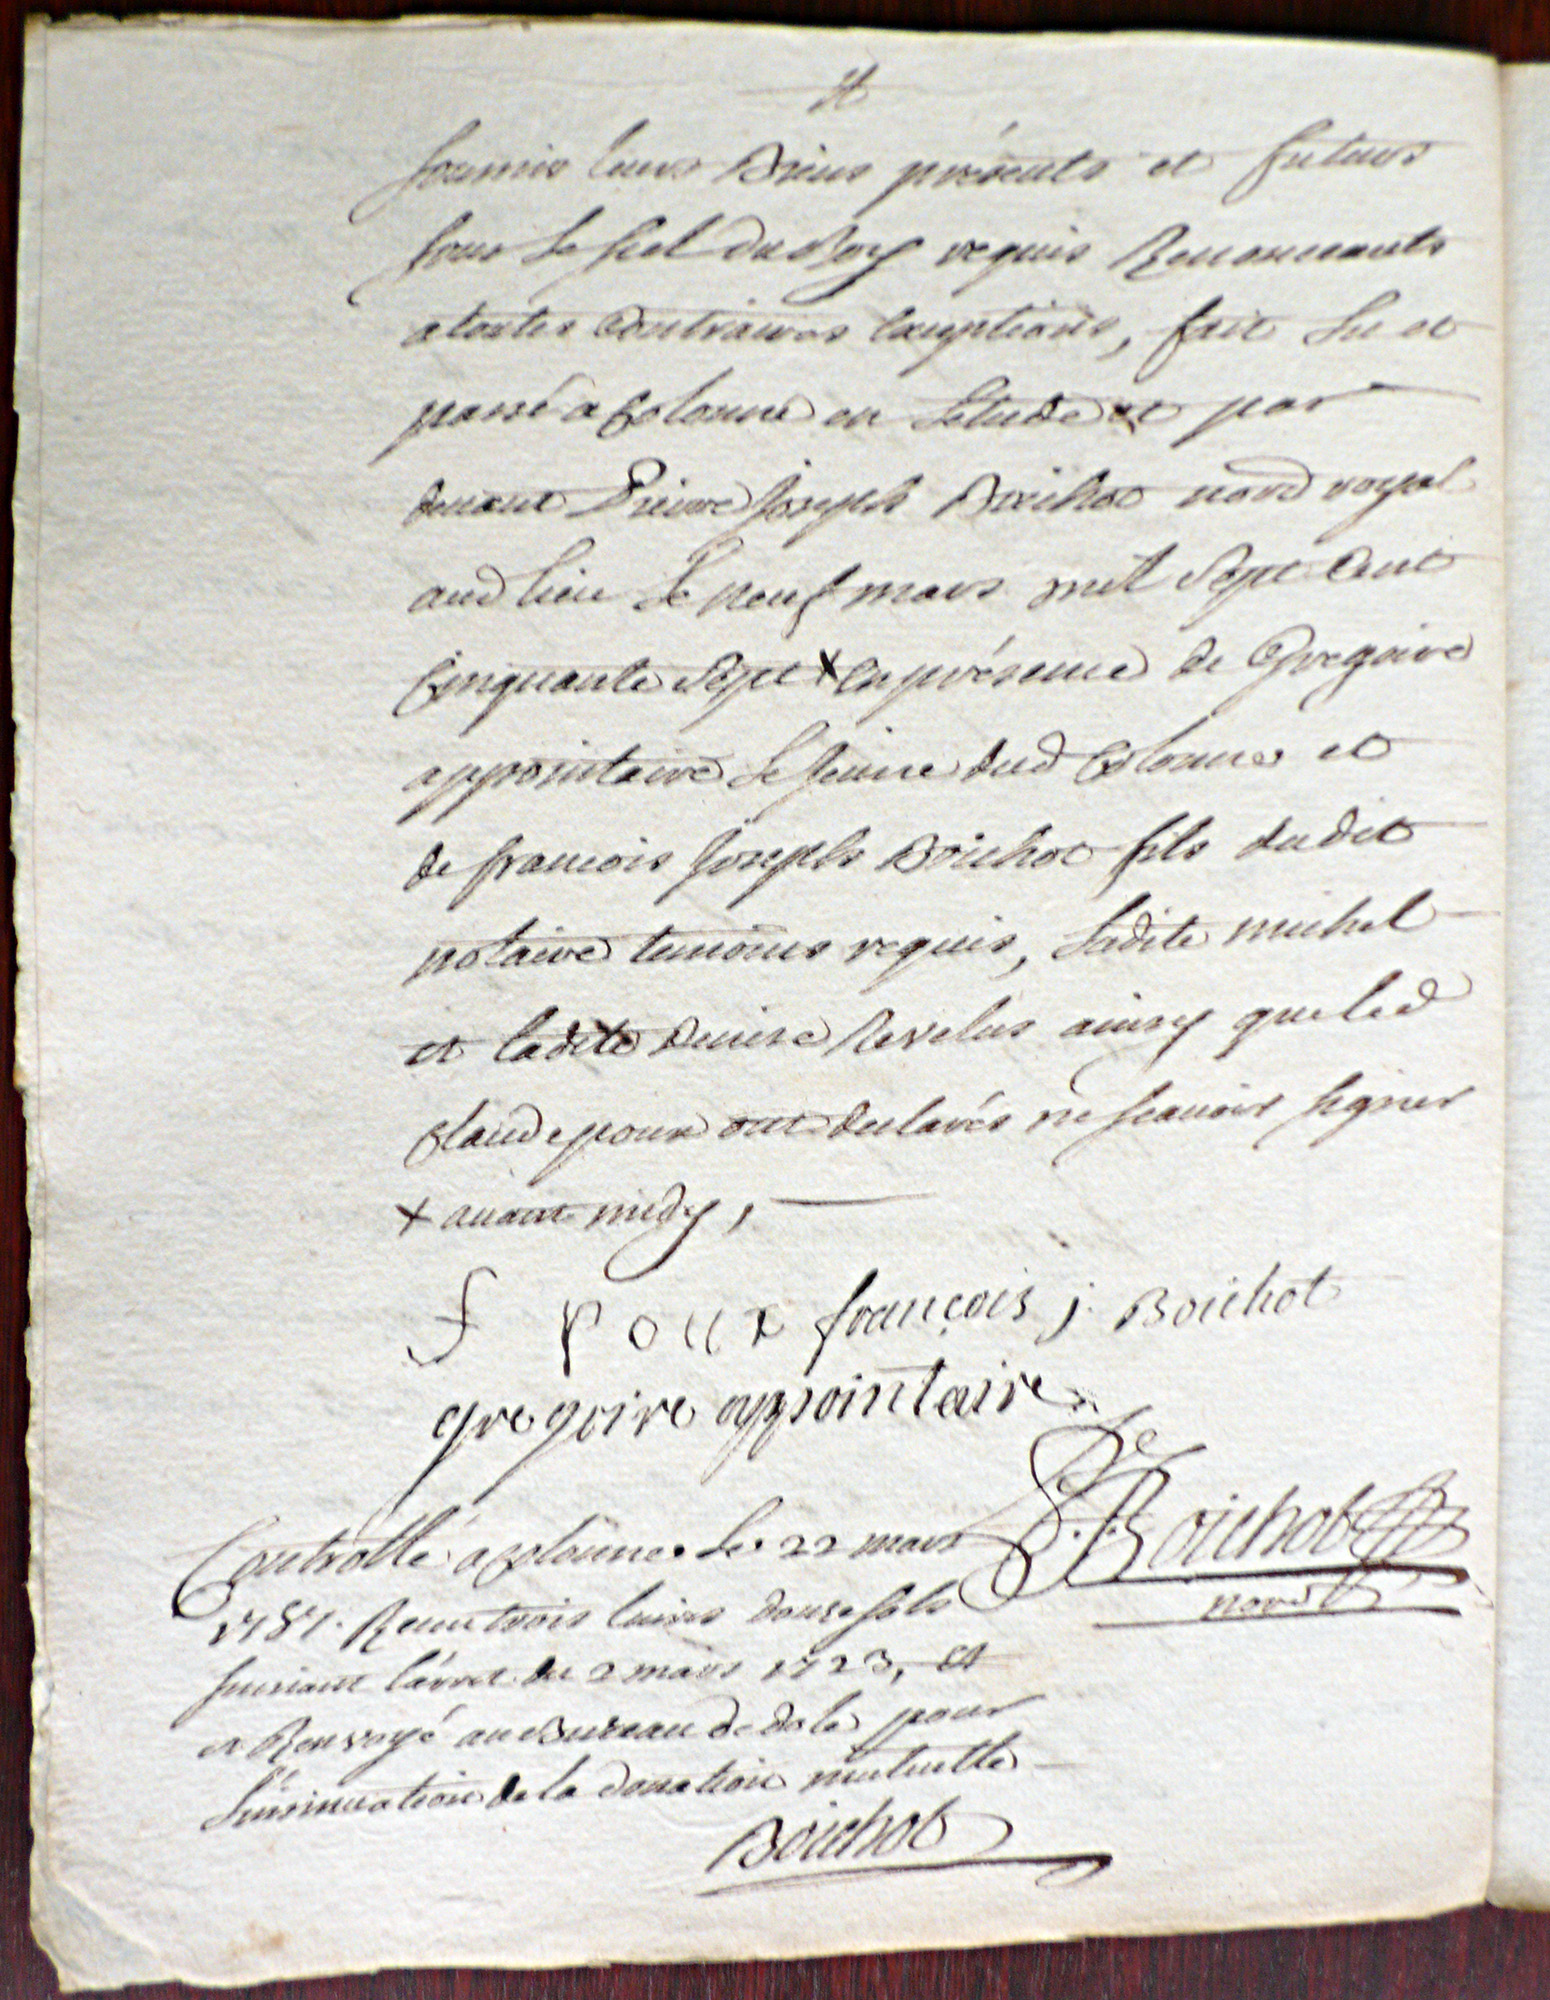 soumis leurs Biens présents et futurs
sous le scel du Roy requis Renonceants
a toutes Contraires exceptions, fait lu et
passé a Colonne en l'etude et par
devant Pierre Joseph Boichot nore royal
aud lieu le neuf mars mil Sept Cent
Cinquante Sept + en présence de Gregoire
appointaire le jeune dud Colonne et
de francois Joseph Boichot fils dudit
notaire temoins requis, ladite michel
et ladite Denise Revelus ainsy que led
Claude poux ont declarés ne scauoir signer
+ auant midy,
f Poux françois j. Boichot
gregoire appointaire
P. J. Boichot
nore
Controllé a Colonne le 22 mars
1757. Receu trois liures douze sols
suiuant l'arret du 2 mars 1723, et
et Renvoyé au Bureau de dole pour
l'insinuation de la donation mutuelle
Boichot